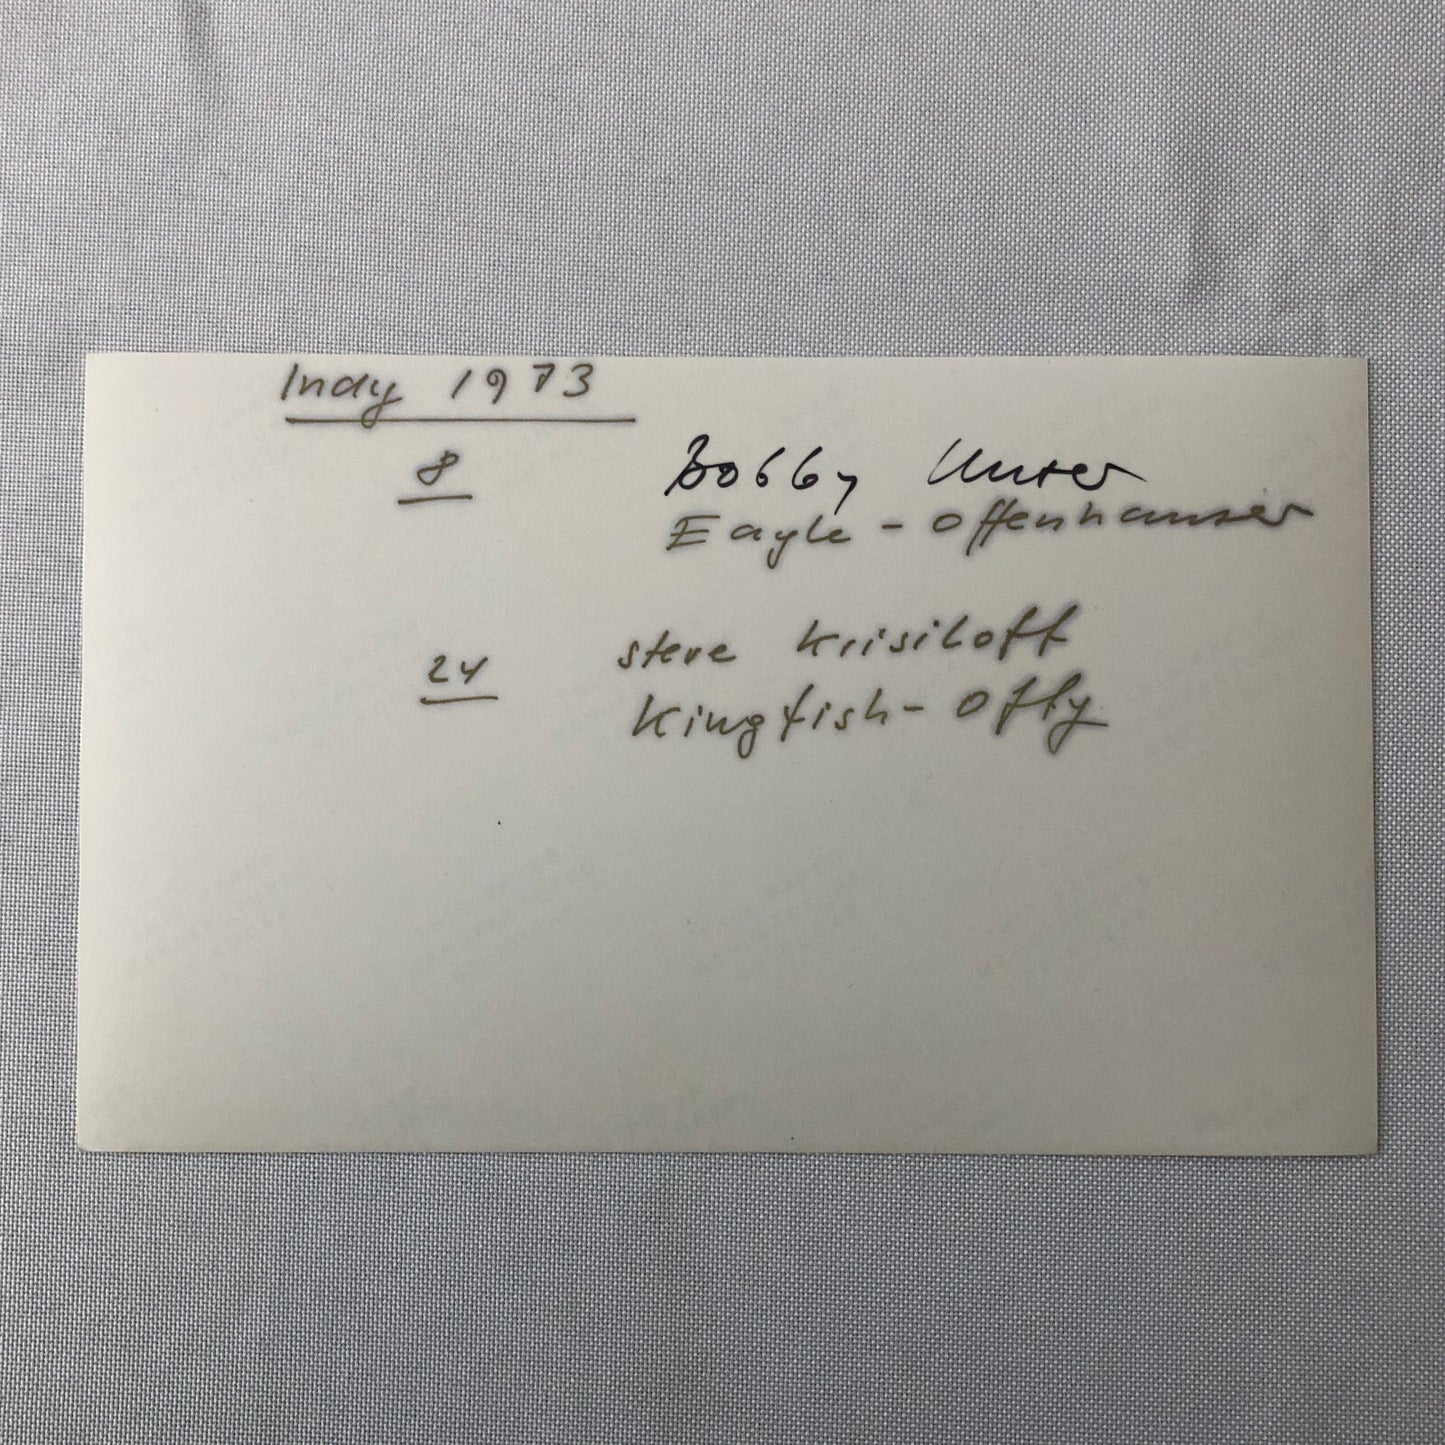 Indy 1973
8 Bobby Unser
Eagle - Offenhauser
24 Steve Krisiloff
Kingfish - Offy